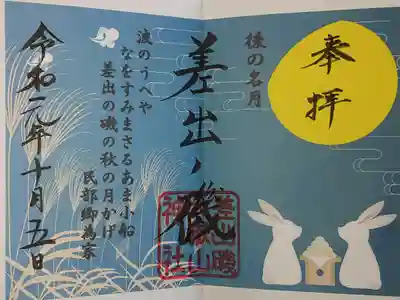 奉拝
後の名月
差出ノ磯
波のうへや
なをすみまさるあま小船
差出の磯の秋の月かげ
民部卿為家
令和元年十月五日